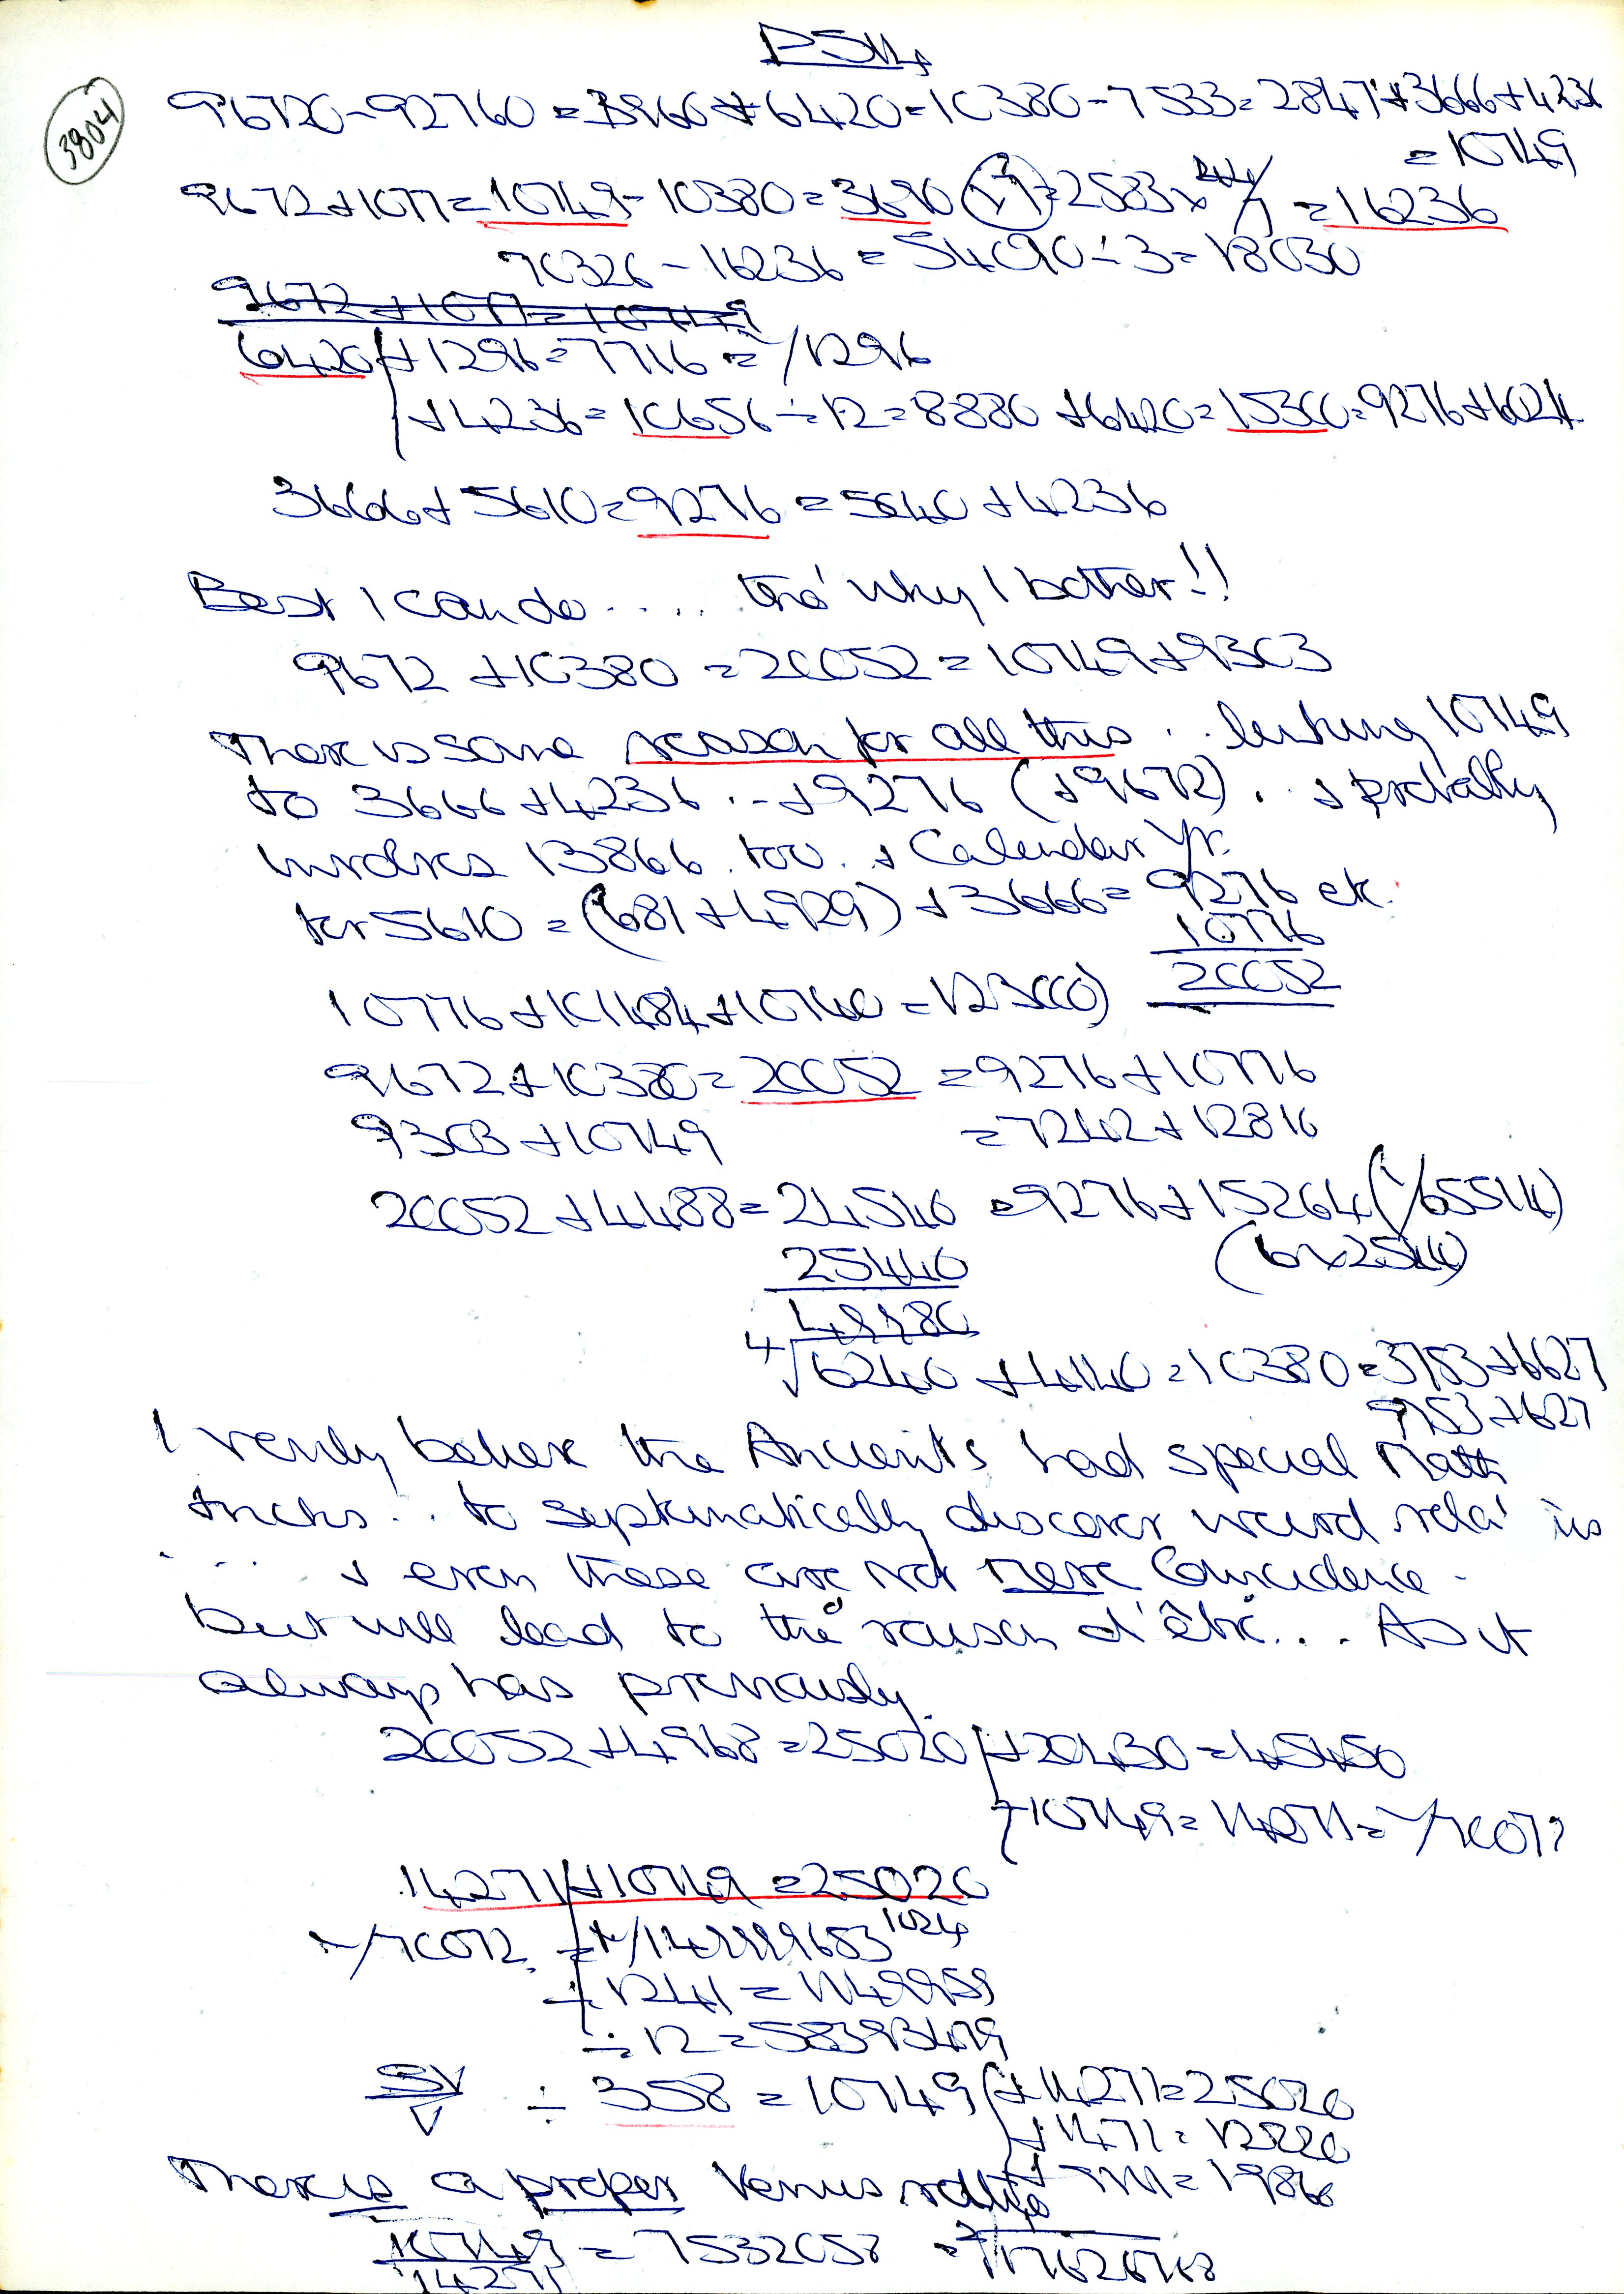 P514
3804
96720 - 92760 = 3960 + 6420 = 10380 - 7533 = 2847 + 3666 + 4236
= 10749
9672 + 1077 = 10749 - 10380 = 3690 (x7) = 2583 x 244/7 = 16236
70326 - 16236 = 54090 ÷ 3 = 18030
9672 + 1077 = 10749
6420 + 1296 = 7716 = √1296
+ 4236 = 10656 ÷ 12 = 8880 + 6420 = 15300 = 9276 + 6024
3666 + 5610 = 9276 = 5040 + 4236
Best I can do .... tho' why I bother!!
9672 + 10380 = 20052 = 10749 + 9303
There is some reason for all this .. linking 10749
to 3666 + 4236 .. + 9276 (+ 9672) . . + probably
involves 13866 too. + Calendar Yr.
for 5610 = (681 + 4929) + 3666 = 9276 etc.
10776
20052
10776 + 101484 + 10740 = 123000)
9672 + 10380 = 20052 = 9276 + 10776
9303 + 10749 = 7242 + 12816
20052 + 4488 = 24540 = 9276 + 15264 (√65514)
(6 x 2544)
25440
49980
4√6240 + 4140 = 10380 = 3753 + 6627
9753 + 627
I verily believe the Ancients had special Math
tricks .. to systematically discover weird rela'
.... + even these are not mere Coincidence -
but will lead to the raison d'être... As it
always has previously.
20052 + 4968 = 25020 + 20430 = 45450
+ 10749 = 14271 =
14271 + 10749 = 25020
÷ 1241 = 1149959
÷ 12 = 58393479
SY/V ÷ 358 = 10749 + 14271 = 25020
+ 1471 = 12220
= 19866
There is a proper Venus
10749/14271 = 7532058 =